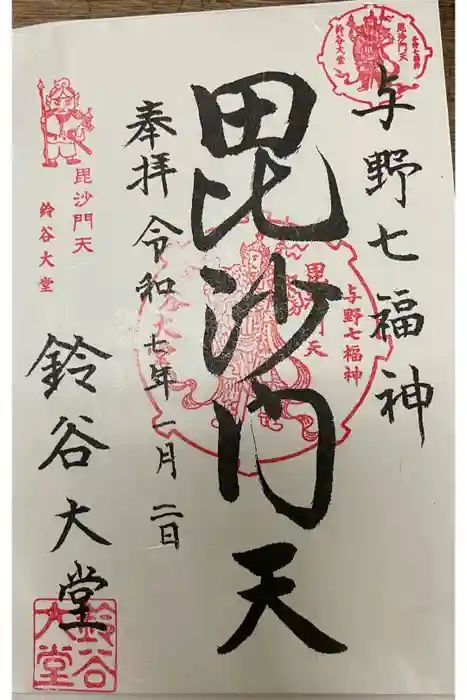 与野七福神
毘沙門天
奉拝 令和七年一月二日
鈴谷大堂
毘沙門天
与野七福神
鈴谷大堂
毘沙門天
与野七福神
鈴谷大堂
毘沙門天
鈴谷大堂
鈴谷大堂